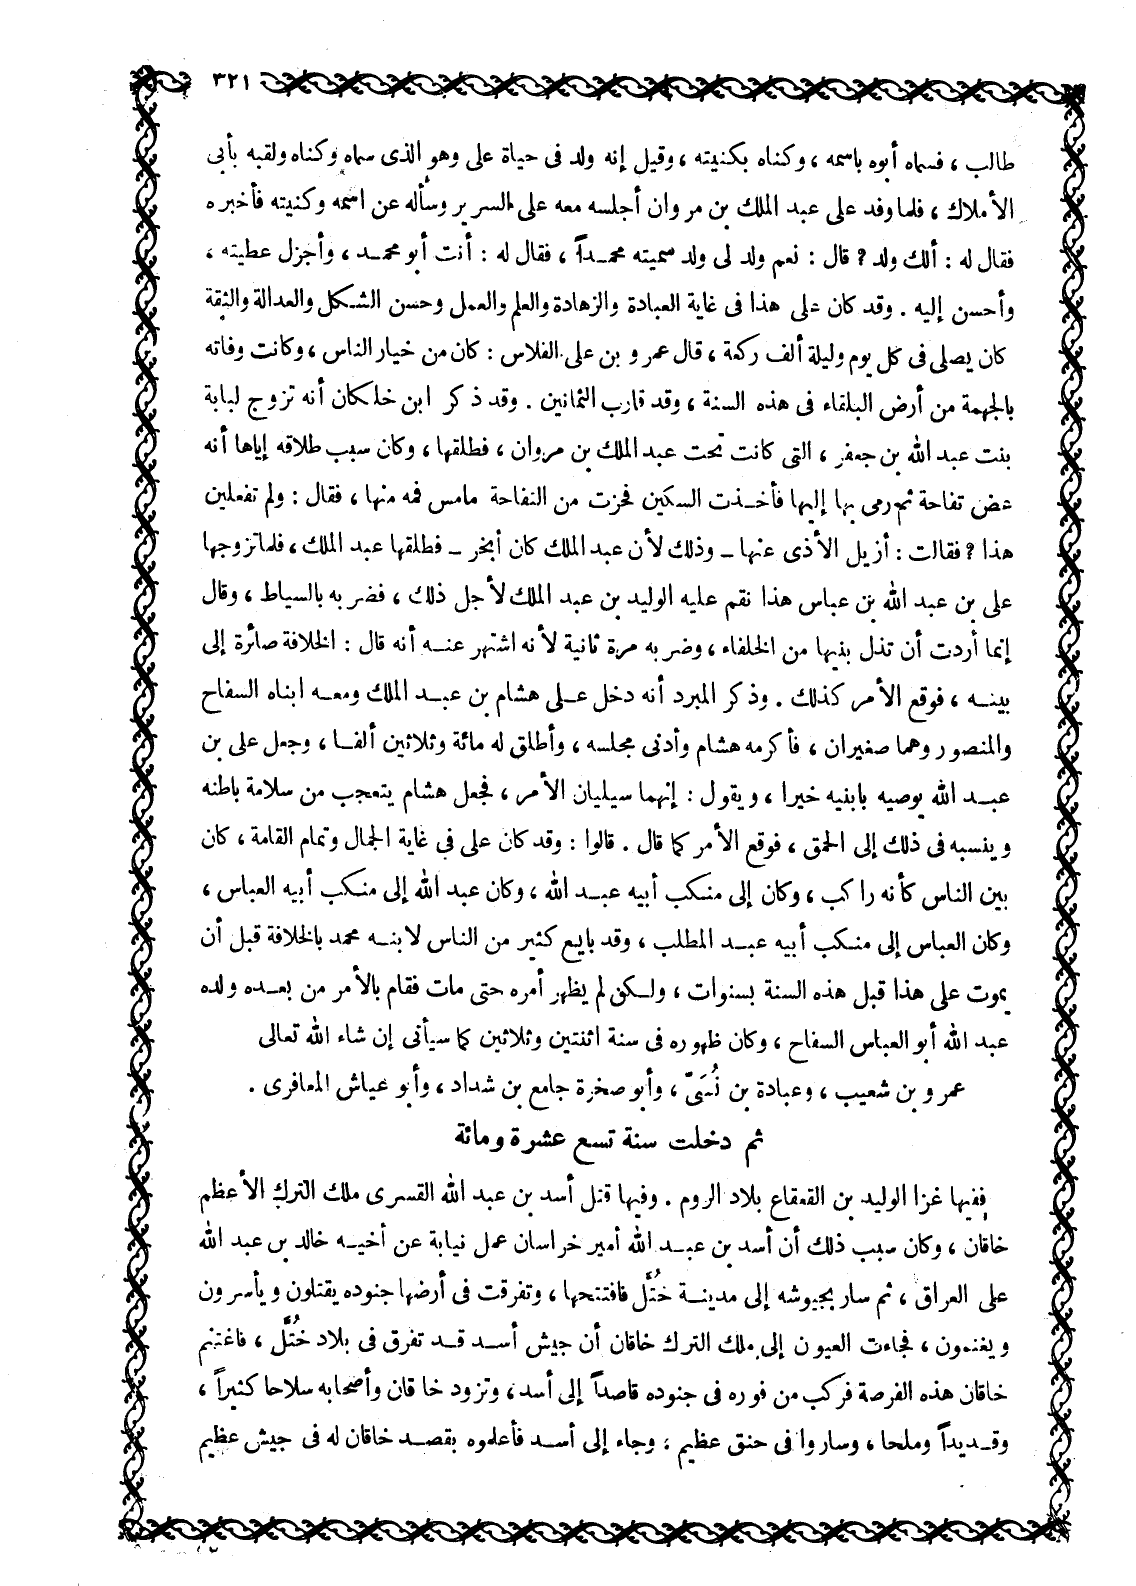 ٣٢١
طالب ، فسماه أبوه باسمه ، وكناه بكنيته ، وقيل إنه ولد فى حياة على وهو الذى سماه وكناه ولقبه بأبى
الأملاك ، فلما وفد على عبد الملك بن مروان أجلسه معه على السرير وسأله عن اسمه وكنيته فأخبره
فقال له : ألك ولد ? قال : نعم ولد لى ولد سميته محمداً ، فقال له : أنت أبو محمد ، وأجزل عطيته ،
وأحسن إليه . وقد كان على هذا فى غاية العبادة والزهادة والعلم والعمل وحسن الشكل والعدالة والثقة
كان يصلى فى كل يوم وليلة ألف ركعة ، قال عمرو بن على الفلاس : كان من خيار الناس ، وكانت وفاته
بالجهمة من أرض البلقاء فى هذه السنة ، وقد قارب الثمانين . وقد ذكر ابن خلكان أنه تزوج لبابة
بنت عبد الله بن جعفر ، التى كانت تحت عبد الملك بن مروان ، فطلقها ، وكان سبب طلاقه إياها أنه
عض تفاحة ثم رمى بها إليها فأخذت السكين فحزت من التفاحة مامس فمه منها ، فقال : ولم تفعلين
هذا ? فقالت : أزيل الأذى عنها ــ وذلك لأن عبد الملك كان أبخر ــ فطلقها عبد الملك ، فلما تزوجها
على بن عبد الله بن عباس هذا نقم عليه الوليد بن عبد الملك لأجل ذلك ، فضربه بالسياط ، وقال
إنما أردت أن تذل بنيها من الخلفاء ، وضربه مرة ثانية لأنه اشتهر عنه أنه قال : الخلافة صائرة إلى
بيته ، فوقع الأمر كذلك . وذكر المبرد أنه دخل على هشام بن عبد الملك ومعه ابناه السفاح
والمنصور وهما صغيران ، فأكرمه هشام وأدنى مجلسه ، وأطلق له مائة وثلاثين ألفا ، وجعل على بن
عبد الله يوصيه بابنيه خيرا ، ويقول : إنهما سيليان الأمر ، فجعل هشام يتعجب من سلامة باطنه
وينسبه فى ذلك إلى الحمق ، فوقع الأمر كما قال . قالوا : وقد كان على فى غاية الجمال وتمام القامة ، كان
بين الناس كأنه راكب ، وكان إلى منكب أبيه عبد الله ، وكان عبد الله إلى منكب أبيه العباس ،
وكان العباس إلى منكب أبيه عبد المطلب ، وقد بايع كثير من الناس لابنه محمد بالخلافة قبل أن
يموت على هذا قبل هذه السنة بسنوات ، ولكن لم يظهر أمره حتى مات فقام بالأمر من بعده ولده
عبد الله أبو العباس السفاح ، وكان ظهوره فى سنة اثنتين وثلاثين كما سيأتى إن شاء الله تعالى
عمرو بن شعيب ، وعبادة بن نُسَىّ ، وأبو صخرة جامع بن شداد ، وأبو عياش المعافرى .
ثم دخلت سنة تسع عشرة ومائة
ففيها غزا الوليد بن القعقاع بلاد الروم . وفيها قتل أسد بن عبد الله القسرى ملك الترك الأعظم
خاقان ، وكان سبب ذلك أن أسد بن عبد الله أمير خراسان عمل نيابة عن أخيه خالد بن عبد الله
على العراق ، ثم سار بجيوشه إلى مدينة خُتَّل فافتتحها ، وتفرقت فى أرضها جنوده يقتلون ويأسرون
ويغنمون ، فجاءت العيون إلى ملك الترك خاقان أن جيش أسد قد تفرق فى بلاد خُتَّل ، فاغتنم
خاقان هذه الفرصة فركب من فوره فى جنوده قاصداً إلى أسد ، وتزود خاقان وأصحابه سلاحا كثيراً ،
وقديداً وملحا ، وساروا فى حنق عظيم ، وجاء إلى أسد فأعلموه بقصد خاقان له فى جيش عظيم